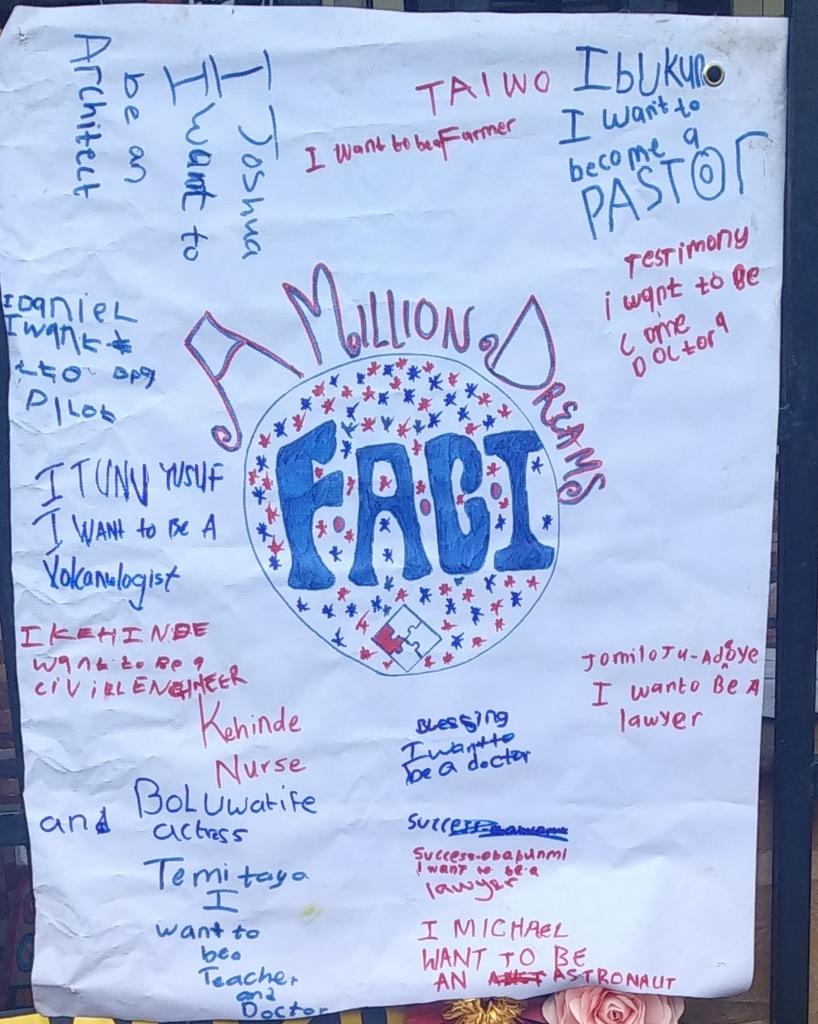 I Joshua
I want to
be an
Architect
TAIWO
I want to be a Farmer
IbUkun
I want to
become a
PASTOr
Testimony
i want to Be
come a
DOCtor
I DanieL
I want
to
Pilot
A MILLION DREAMS
F.A.C.I
ITUNU YUSUF
I WANT to BE A
Volkanologist
I KEHINDE
want to be a
CiViLENGiNEER
Kehinde
Nurse
and BOLUWatife
actress
Temitayo
I
want to
be a
Teacher
and
Doctor
JomiloJu-Adeoye
I wanto BE A
lawyer
BLessing
I want to
be a doctor
Success
Success-obabunmi
I want to be a
lawyer
I MICHAEL
WANT TO BE
AN ASTRONAUT